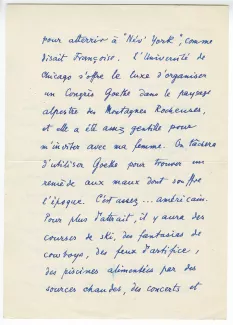 pour atterrir à "Nev' York", comme
disait Françoise. L'Université de
Chicago s'offre le luxe d'organiser
un Congrès Goethe dans le paysage
alpestre des Montagnes Rocheuses,
et elle a été assez gentille pour
m'inviter avec ma femme. On tâchera
d'utiliser Goethe pour trouver un
remède aux maux dont souffre
l'époque. C'est assez... américain.
Pour plus d'attrait, il y aura des
courses de ski, des fantasias de
cowboys, des feux d'artifice,
des piscines alimentées par des
sources chaudes, des concerts et